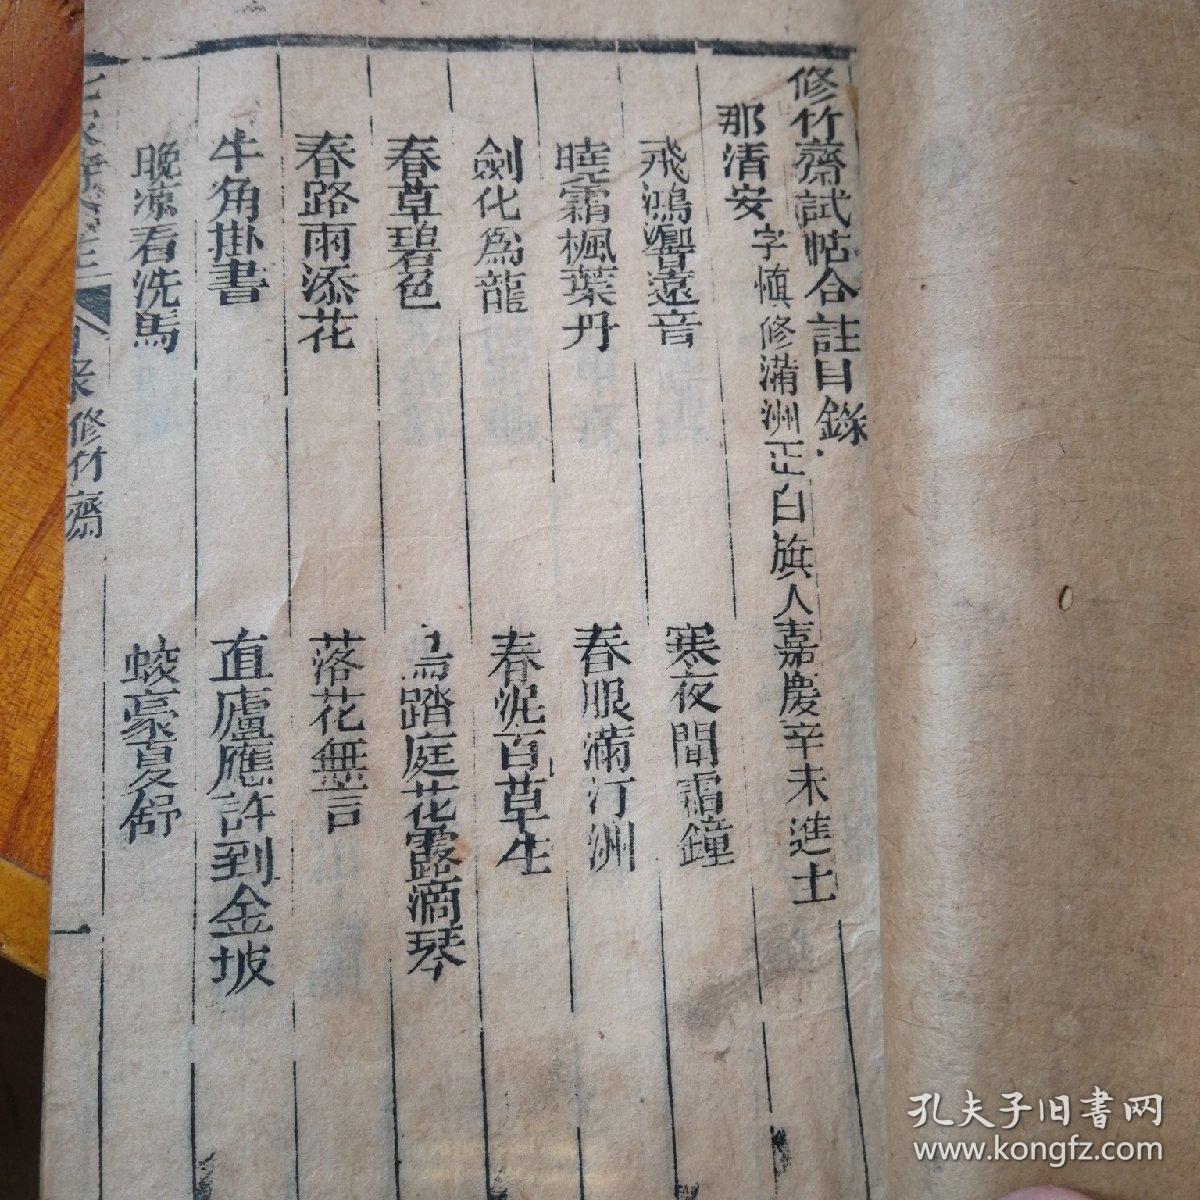 修竹齋試帖合註目錄
那清安 字慎修滿洲正白旗人嘉慶辛未進士
飛鴻響遠音 寒夜聞霜鐘
曉霜楓葉丹 春服滿汀洲
劍化為龍 春泥百草生
春草碧色 鳥踏庭花露滴琴
春路雨添花 落花無言
牛角掛書 直廬應許到金坡
晚涼看洗馬 蛟豪夏舒
目錄 修竹齋 一
孔夫子旧书网
www.kongfz.com